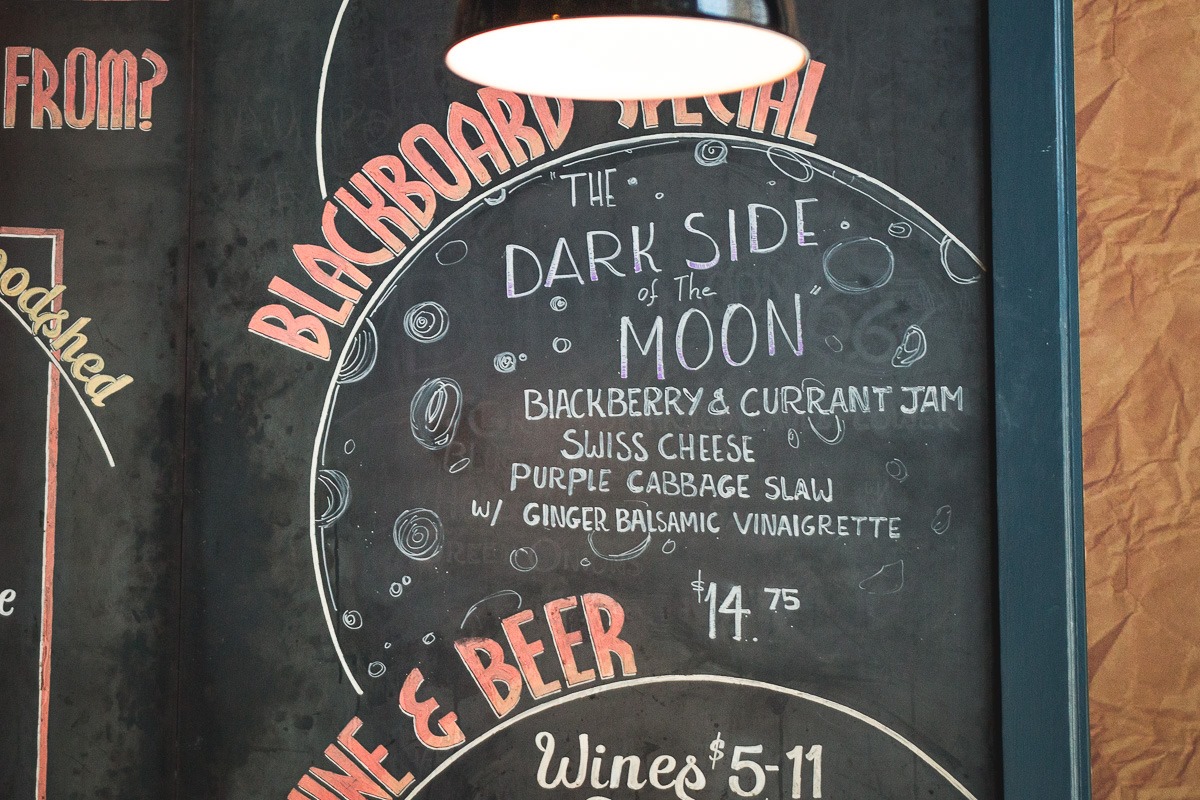 FROM?
oodshed
e
BLACKBOARD SPECIAL
"THE
DARK SIDE
of The
MOON"
BlACKBERRY & CURRANT JAM
SWISS CHEESE
PURPLE CABBAGE SLAW
W/ GINGER BALSAMIC VINAIGRETTE
$14.75
INE & BEER
Wines $5-11